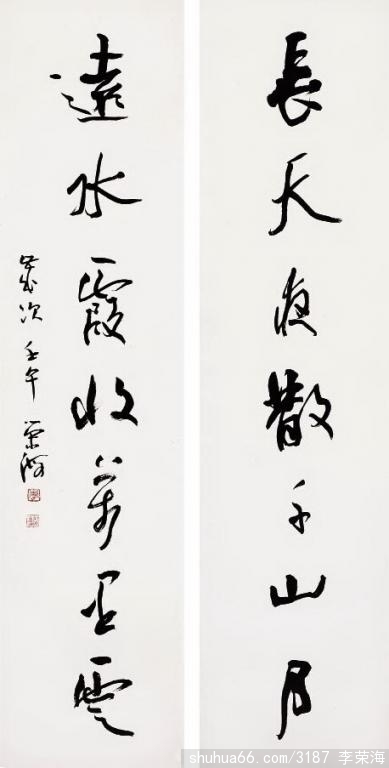 長天夜散千山月
遠水霞收萬里雲
歲次壬午 榮海
shuhua66.com/3187 李荣海